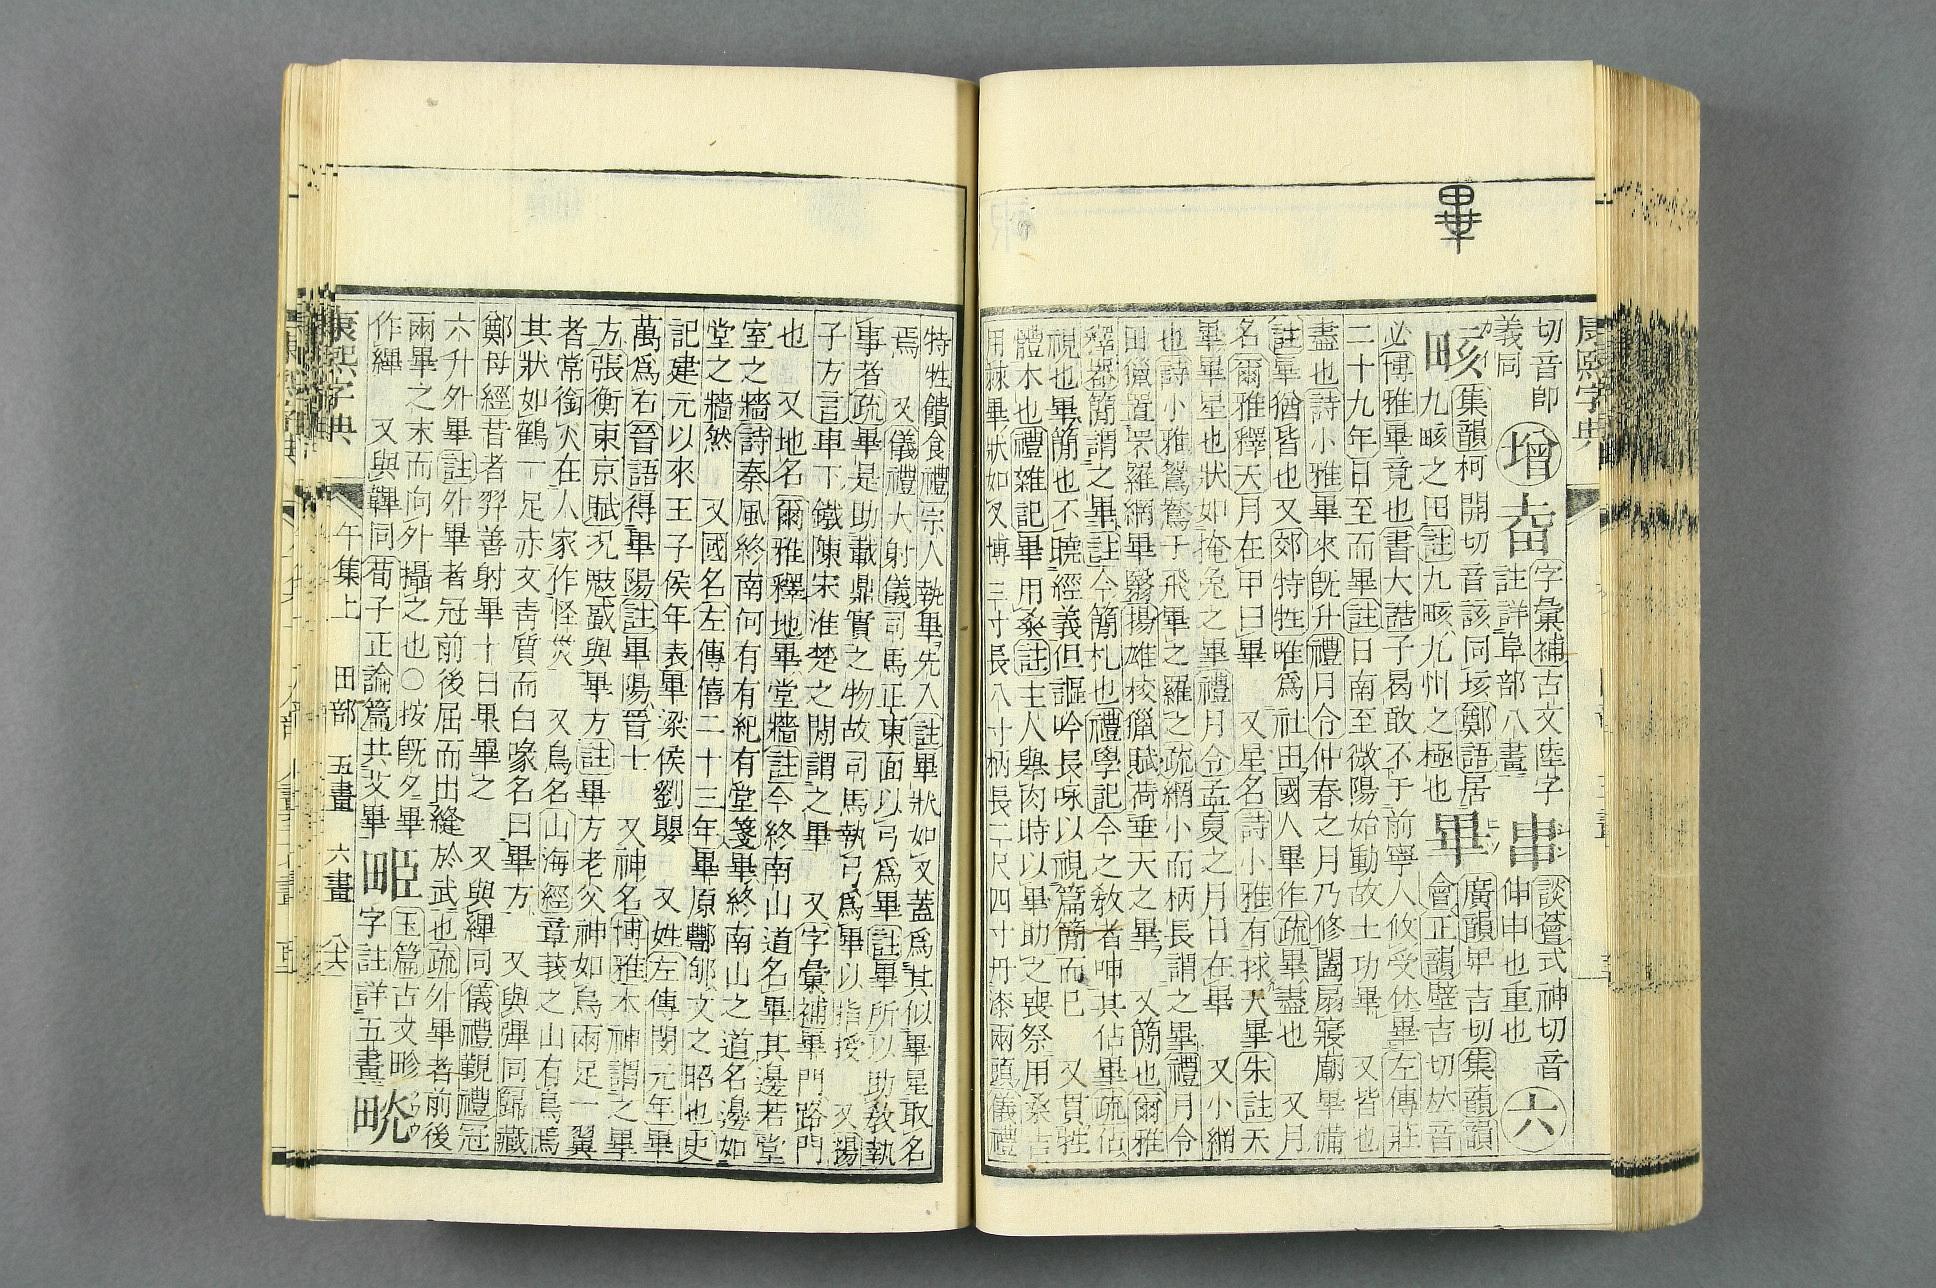 畢
康熙字典
切音卽
義同
增
㚊
字彙補古文陸字
註詳阜部八畫
𤰶
談薈式神切音
伸申也重也
六
畡
集韻柯開切音該同垓鄭語居
九畡之田註九畡九州之極也
畢
廣韻𤰞吉切集韻韻
會正韻壁吉切𠀤音
必博雅畢竟也書大誥予曷敢不于前寧人攸受休畢左傳莊
二十九年日至而畢註日南至微陽始動故土功畢 又皆也
盡也詩小雅畢來旣升禮月令仲春之月乃修闔扇寢廟畢備
註畢猶皆也又郊特牲唯爲社田國人畢作疏畢盡也 又月
名爾雅釋天月在甲曰畢 又星名詩小雅有捄天畢朱註天
畢畢星也狀如掩兔之畢禮月令孟夏之月日在畢 又小網
也詩小雅鴛鴦于飛畢之羅之疏網小而柄長謂之畢禮月令
田獵罝罘羅網畢翳揚雄校獵賦荷垂天之畢 又簡也爾雅
釋器簡謂之畢註今簡札也禮學記今之敎者呻其佔畢疏佔
視也畢簡也不曉經義但謳吟長咏以視篇簡而已 又貫牲
體木也禮雜記畢用桑註主人舉肉時以畢助之喪祭用桑吉
用棘畢狀如叉博三寸長八寸柄長二尺四寸丹漆兩頭儀禮
特牲饋食禮宗人執畢先入註畢狀如叉蓋爲其似畢星取名
焉 又儀禮大射儀司馬正東面以弓爲畢註畢所以助敎執
事者疏畢是助載鼎實之物故司馬執弓爲畢以指授 又揚
子方言車下鐵陳宋淮楚之閒謂之畢 又字彙補畢門路門
也 又地名爾雅釋地畢堂牆註今終南山道名畢其邊若堂
室之牆詩秦風終南何有有紀有堂箋畢終南山之道名邊如
堂之牆然 又國名左傳僖二十三年畢原酆郇文之昭也史
記建元以來王子侯年表畢梁侯劉嬰 又姓左傳閔元年畢
萬爲右晉語得畢陽註畢陽晉士 又神名博雅木神謂之畢
方張衡東京賦况鬾蜮與畢方註畢方老父神如鳥兩足一翼
者常銜火在人家作怪災 又鳥名山海經章莪之山有鳥焉
其狀如鶴一足赤文靑質而白喙名曰畢方 又與彈同歸藏
鄭母經昔者羿善射畢十日果畢之 又與縪同儀禮觀禮冠
六升外畢註外畢者冠前後屈而出縫於武也疏外畢者前後
兩畢之末而向外攝之也○按旣夕畢
作縪 又與鞸同荀子正論篇共艾畢
𤱍
玉篇古文畛
字註詳五畫
晄
康熙字典
午集上
田部
五畫
六畫